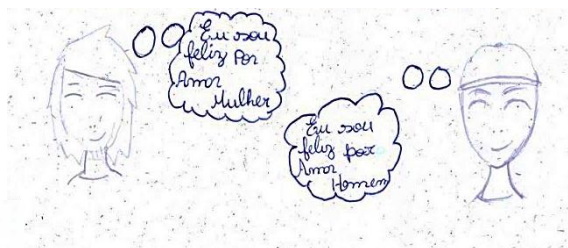 Eu sou
feliz Por
Amor
Mulher
Eu sou
feliz por
Amor
Homem